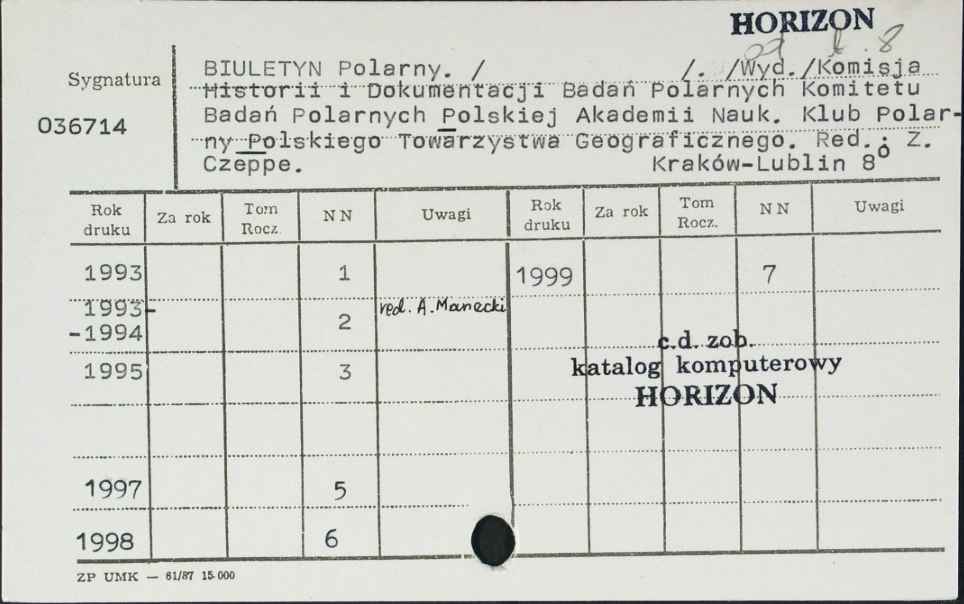 HORIZON
od t. 8
BIULETYN Polarny. / /. /Wyd./Komisja
Sygnatura
Historii i Dokumentacji Badań Polarnych Komitetu
036714
Badań Polarnych Polskiej Akademii Nauk. Klub Polar-
ny Polskiego Towarzystwa Geograficznego. Red.: Z.
Czeppe. Kraków-Lublin 8º
Rok druku Za rok Tom Rocz. NN Uwagi Rok druku Za rok Tom Rocz. NN Uwagi
1993 1 1999 7
1993-
-1994 2 red. A. Manecki
c.d. zob.
1995 3
katalog komputerowy
HORIZON
1997 5
1998 6
ZP UMK — 61/87 15 000